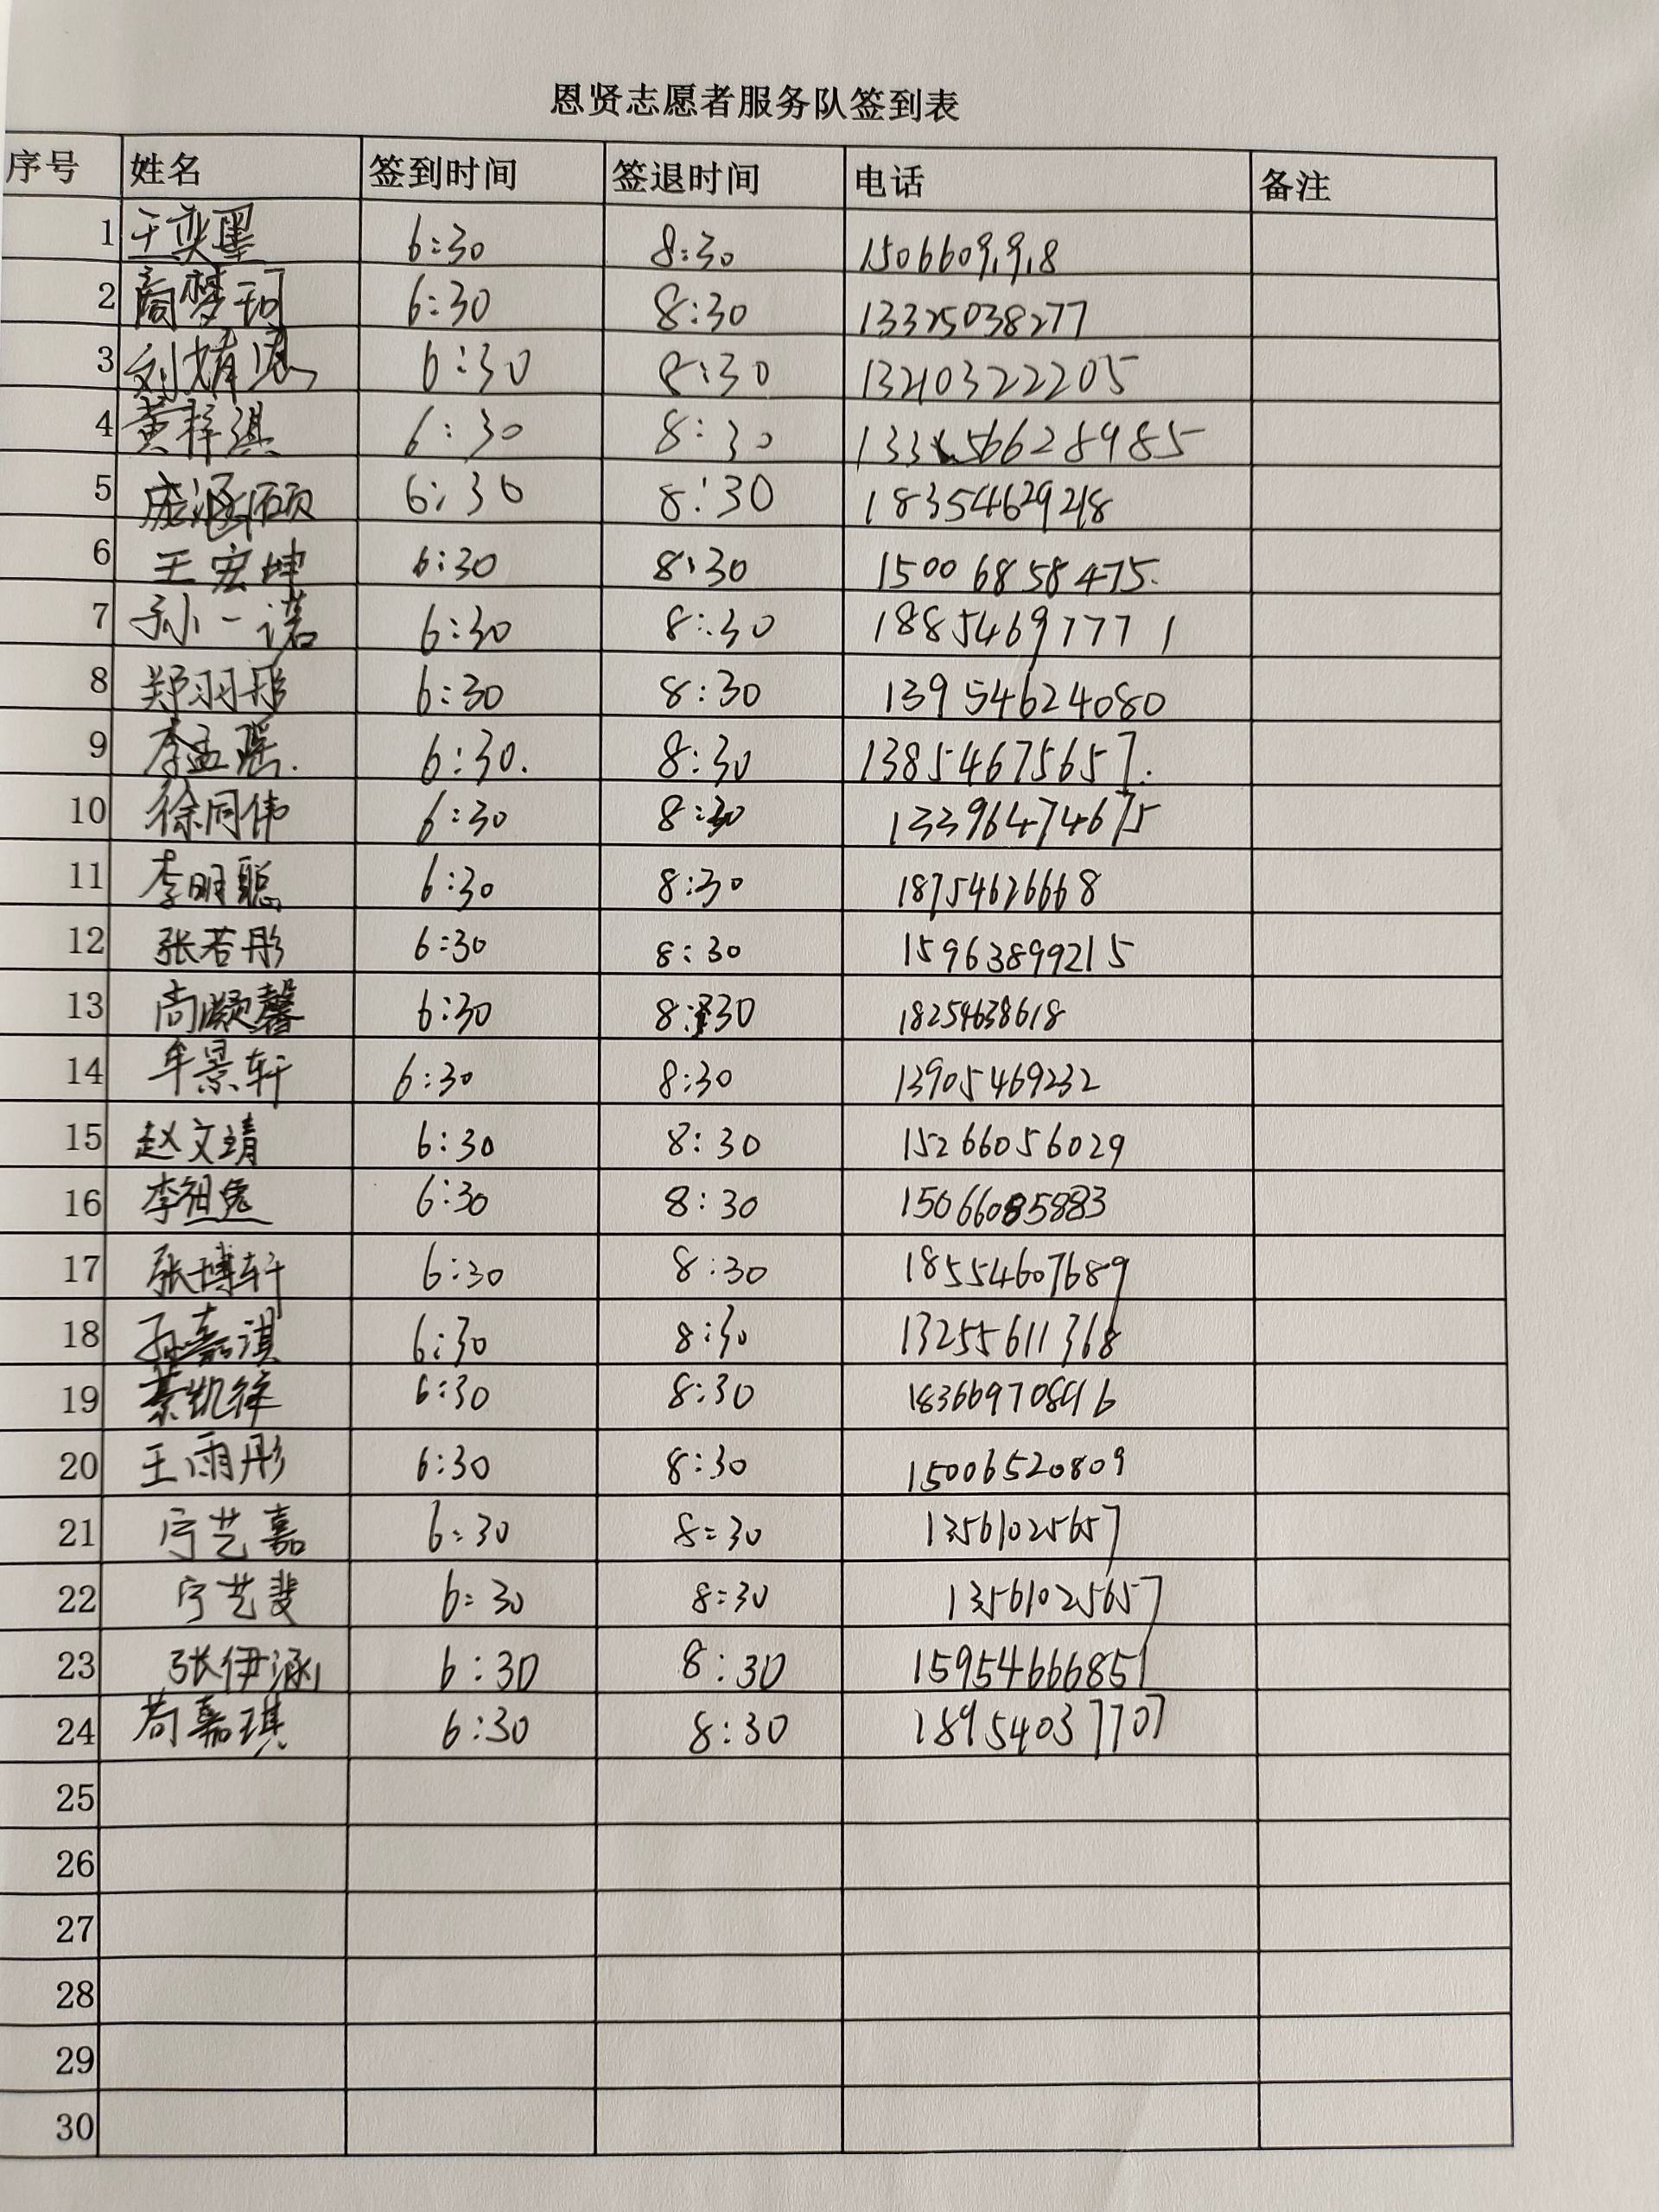 恩贤志愿者服务队签到表
序号 姓名 签到时间 签退时间 电话 备注
1 王奕墨 6:30 8:30 1506609,9,8
2 商梦珂 6:30 8:30 13325038277
3 刘婧 6:30 8:30 13210322205
4 黄梓淇 6:30 8:30 1335668985
5 庞涵硕 6:30 8:30 18354629218
6 王宏坤 6:30 8:30 15006858475.
7 孙一诺 6:30 8:30 18854697771
8 郑羽彤 6:30 8:30 13954624080
9 李孟瑶. 6:30. 8:30 13854675657.
10 徐同伟 6:30 8:30 13396474675
11 李明聪 6:30 8:30 18754626668
12 张若彤 6:30 8:30 15963899215
13 尚凝馨 6:30 8:30 18254638618
14 牟景轩 6:30 8:30 13905469232
15 赵文靖 6:30 8:30 15266056029
16 李祖 6:30 8:30 15066085883
17 张博轩 6:30 8:30 18554607689
18 孙嘉淇 6:30 8:30 13255611368
19 綦凯 6:30 8:30
20 王雨彤 6:30 8:30 15006520809
21 宁艺嘉 6:30 8:30 13561025657
22 宁艺斐 6:30 8:30 13561025657
23 张伊涵 6:30 8:30 15954666851
24 苟嘉琪 6:30 8:30 18954037707
25
26
27
28
29
30